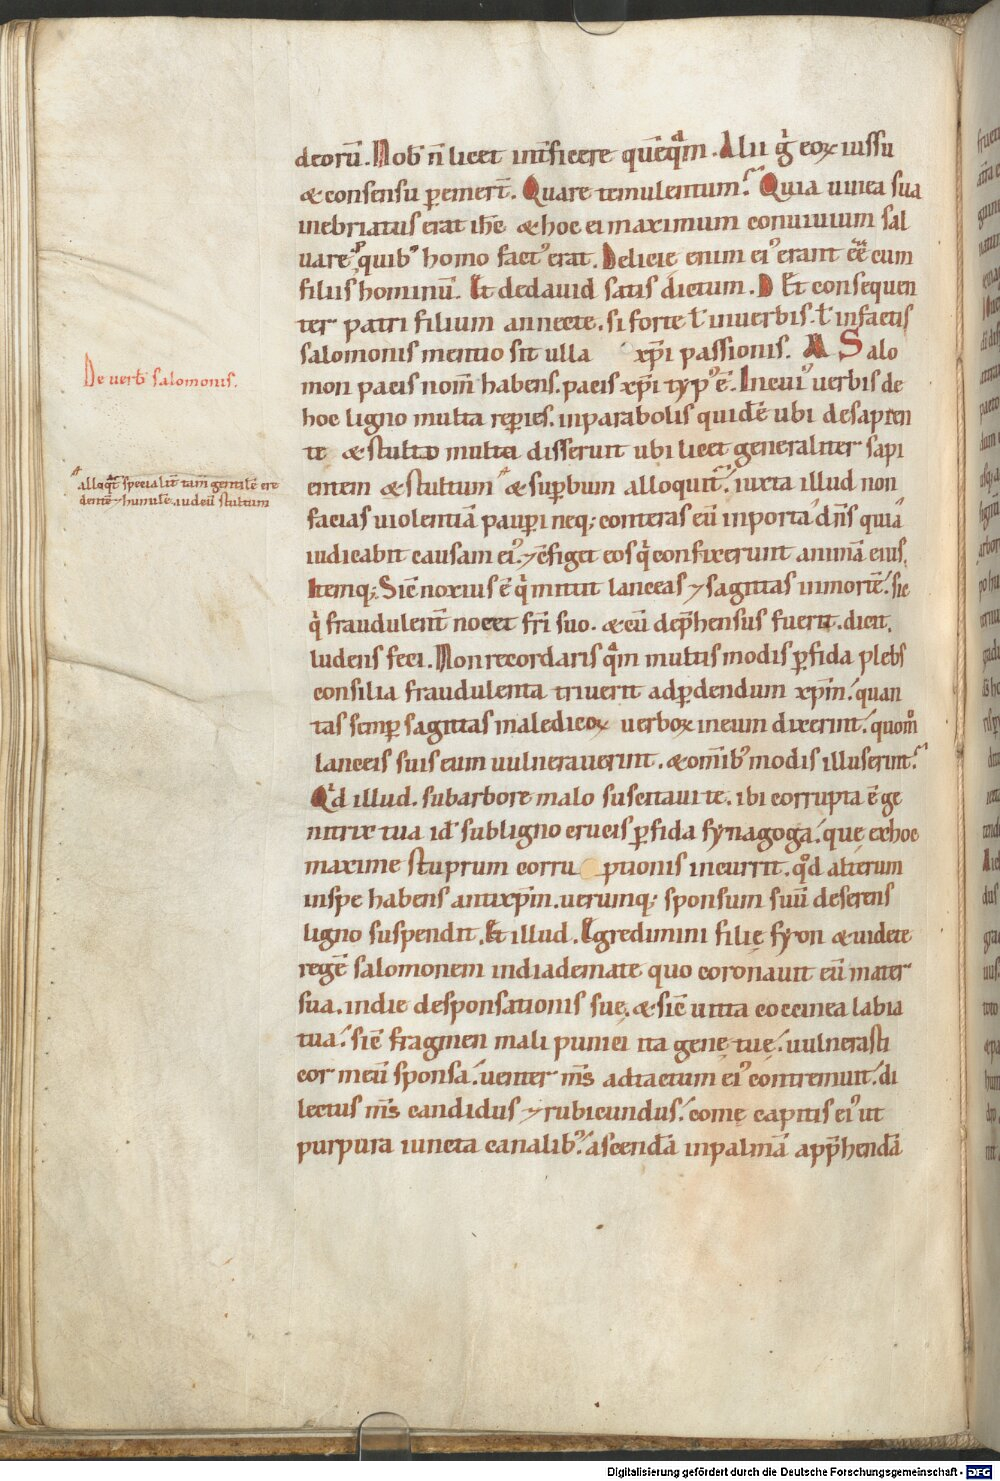 deorū. Nob̄ n̄ licet int̄ficere quēq̄m. Alii g̊ eoꝝ iussu
& consensu pemert̄. Quare temulentum? Quia uinea sua
inebriatus erat ih̄c & hoc ei maximum conuiuium sal
uare quib; homo fact᾿ erat. Delicie enim ei᾿ erant ēē cum
filiis hominū. Et dedauid satis dictum. D Et consequen
ter patri filium annecte. si forte ł inuerbis. ł infactis
salomonis mentio sit ulla xp̄i passionis. M Salo
mon pacis nom̄ habens. pacis xp̄i typ᾿ ē. Ineui᾿ uerbis de
hoc ligno multa repies. inparabolis quidē ubi desapien
te & stulto multa disserunt ubi licet generaliter sapi
entem & stultum & supbum alloquit̄. iuxta illud non
facias uiolentiā paupi neq; conteras eū inporta dn̄s quia
iudicabit causam ei᾿. ⁊ cfiget eos q̊ confixerunt animā eius.
Itemq; Sic̄ noxius ē q̊ mittit lanceas ⁊ sagittas inmortē. sic
q̊ fraudulent̄ nocet fr̄i suo. & cū dep̄hensus fuerit. dicit.
ludens feci. Non recordaris q̄m multis modis pfida plebs
consilia fraudulenta triuerit adpdendum xp̄m. quan
tas semp sagittas maledicoꝝ uerboꝝ ineum dixerint. quom̊
lanceis suis eum uulnerauerint. & om̄ib᾿ modis illuserint?
Qd illud. subarbore malo suscitaui te. ibi corrupta ē ge
nitrix tua id̄ subligno crucis pfida synagoga. que exhoc
maxime stuprum corru ptionis incurrit. qd alterum
inspe habens antixp̄m. uerumq; sponsum suū deserens
ligno suspendit. Et illud. Egredimini filię syon & uidete
regē salomonem indiademate quo coronauit eū mater
sua. indie desponsationis suę. & sic̄ uitta coccinea labia
tua. sic̄ fragmen mali punici ita genę tuę. uulnerasti
cor meū sponsa. uenter m̄s adtactum ei᾿ contremuit. di
lectus m̄s candidus ⁊ rubicundus. comę capitis ei᾿ ut
purpura iuncta canalib᾿. ascendā inpalmā app̄hendā
De uerb̄ salomonis.
alloq̄t̄ specialit̄ tam̄ gentilē cre
dentē ⁊ humilē. iudeū stultum
Digitalisierung gefördert durch die Deutsche Forschungsgemeinschaft - DFG